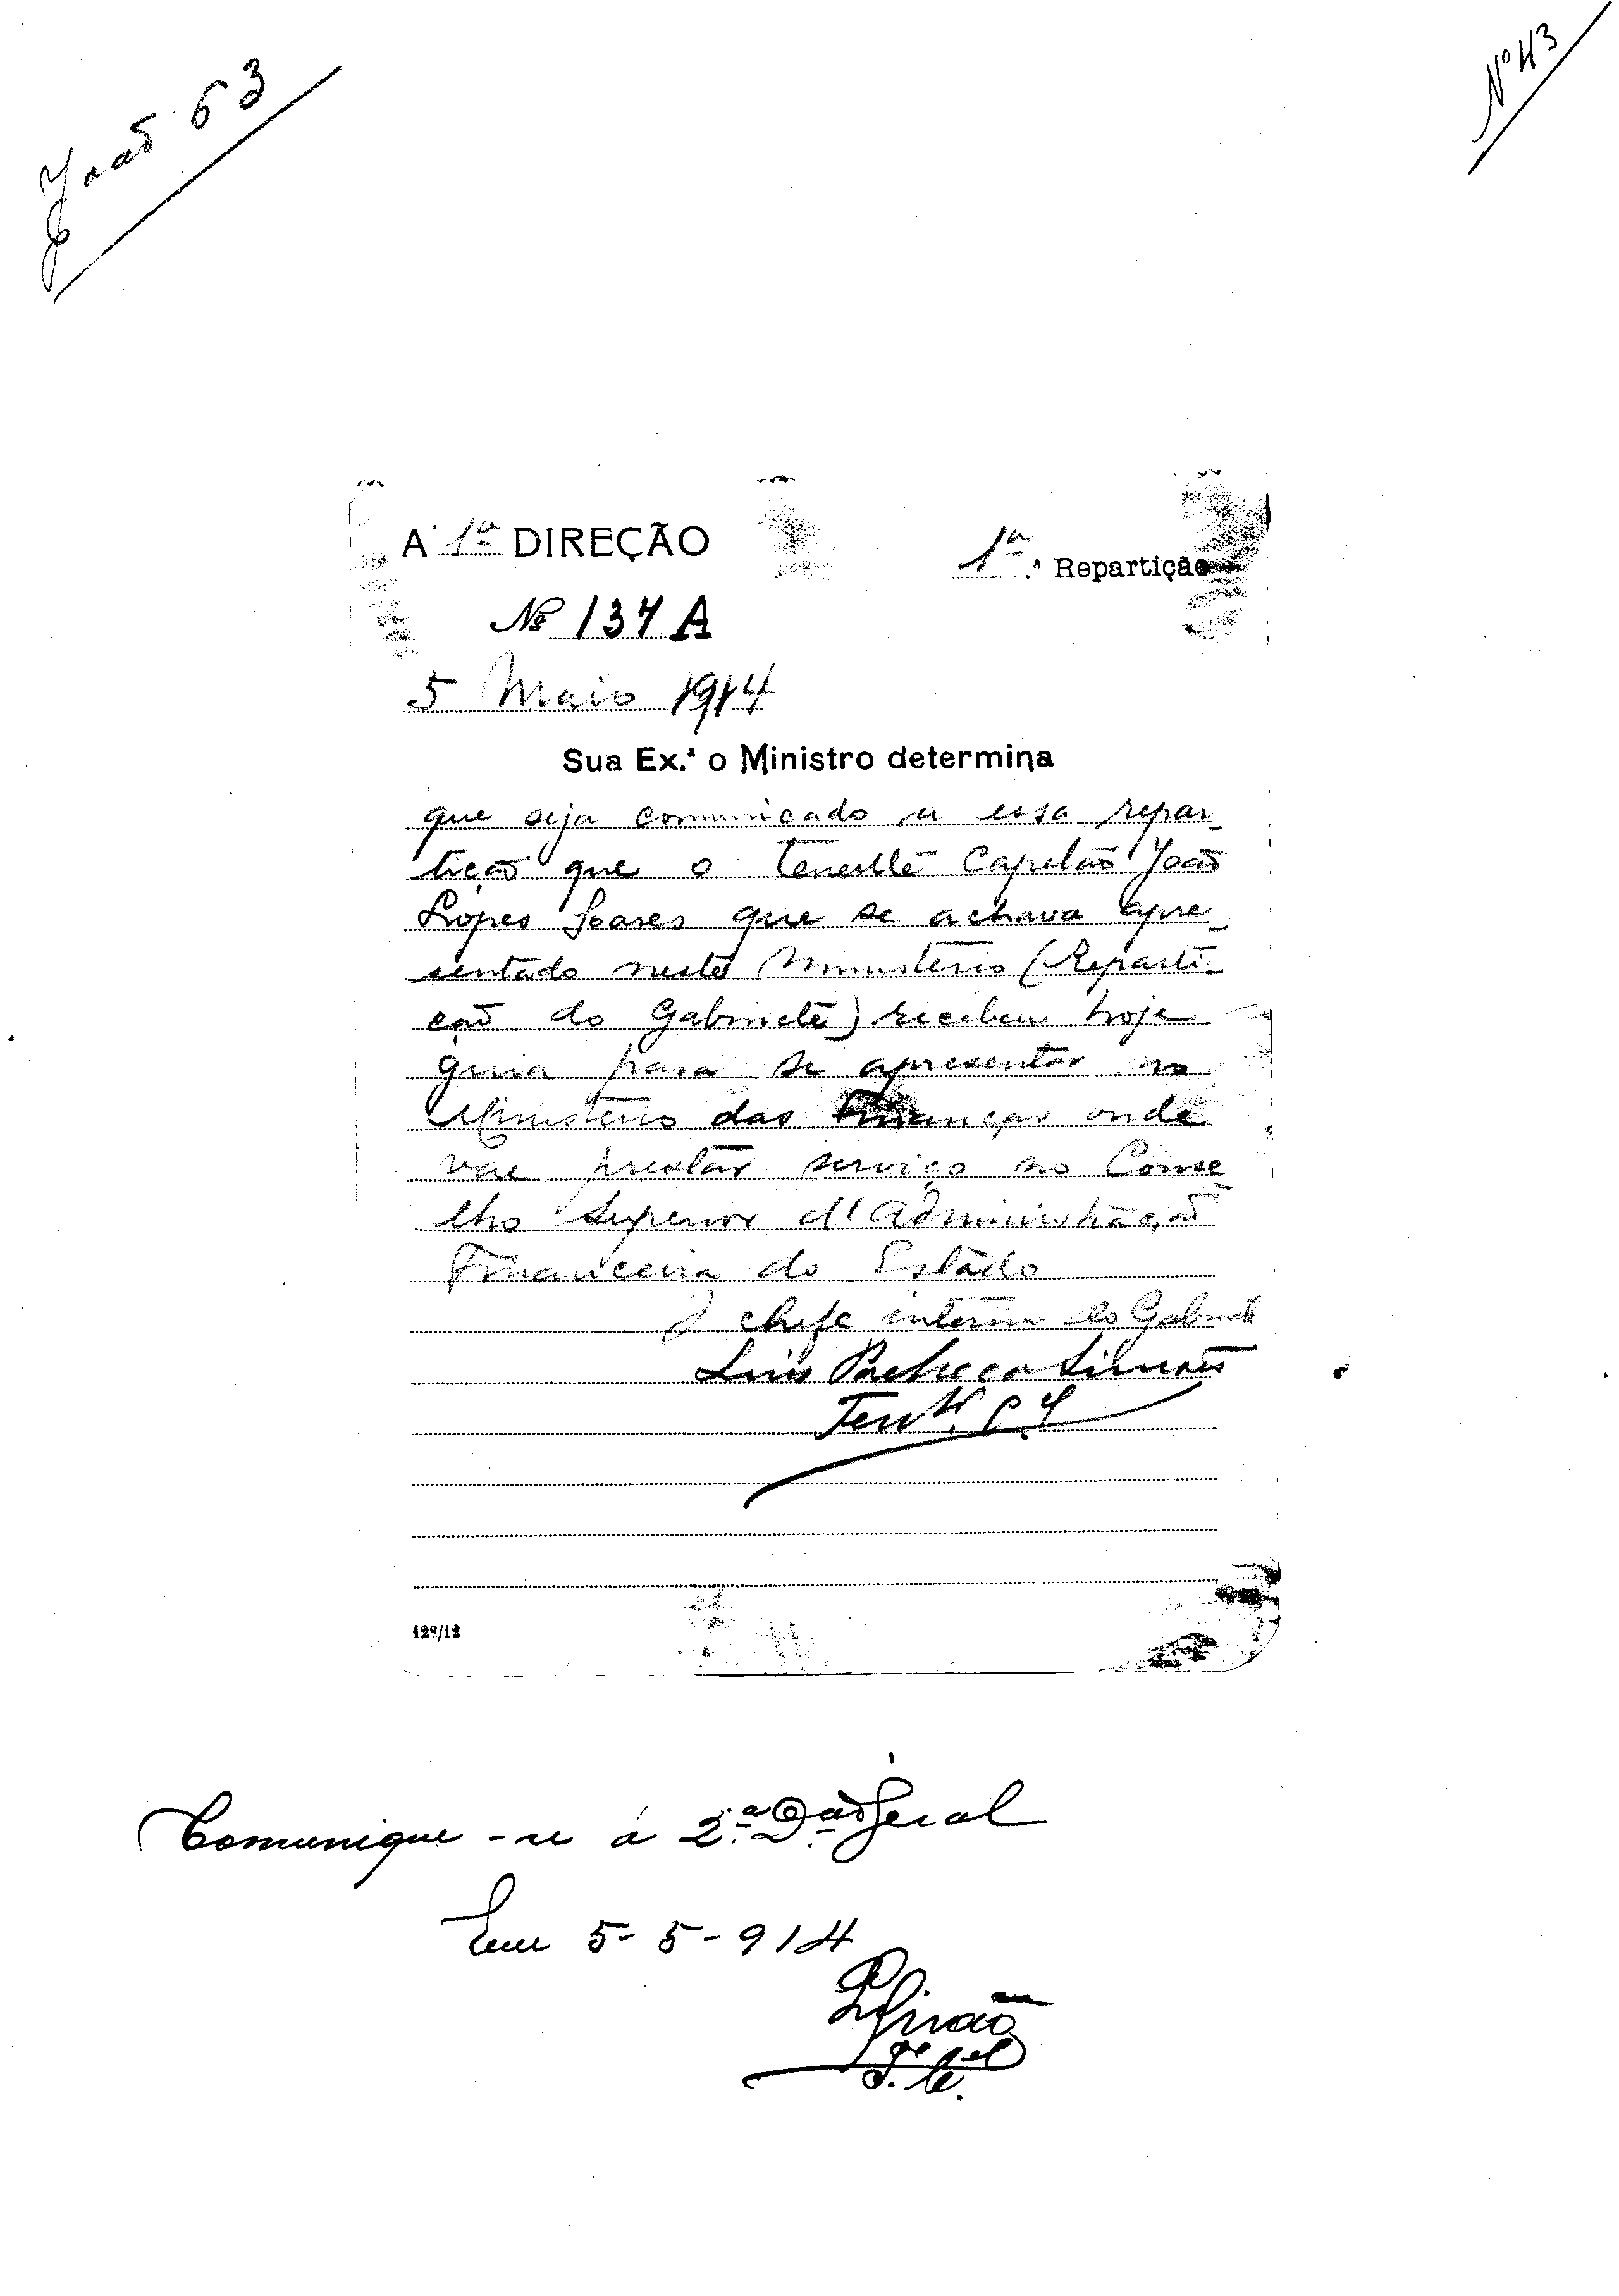 João 63
Nº 43
A 1ª DIREÇÃO
1ª .ª Repartição
Nº 137 A
5 Maio 1914
Sua Ex.ª o Ministro determina
que seja comunicado a essa repar_
tição que o Tenente Capelão João
Lopes Soares que se achava apre_
sentado neste Ministerio (Reparti_
ção do Gabinete) recebeu hoje
guia para se apresentar no
Ministerio das Finanças onde
vae prestar serviço no Conse
lho Superior d'Administração
Financeira do Estado
O chefe interino do Gabinete
Luis Pacheco Simões
Ten.te
129/12
Comunique-se á 2.ª D.ção Geral
Em 5-5-914